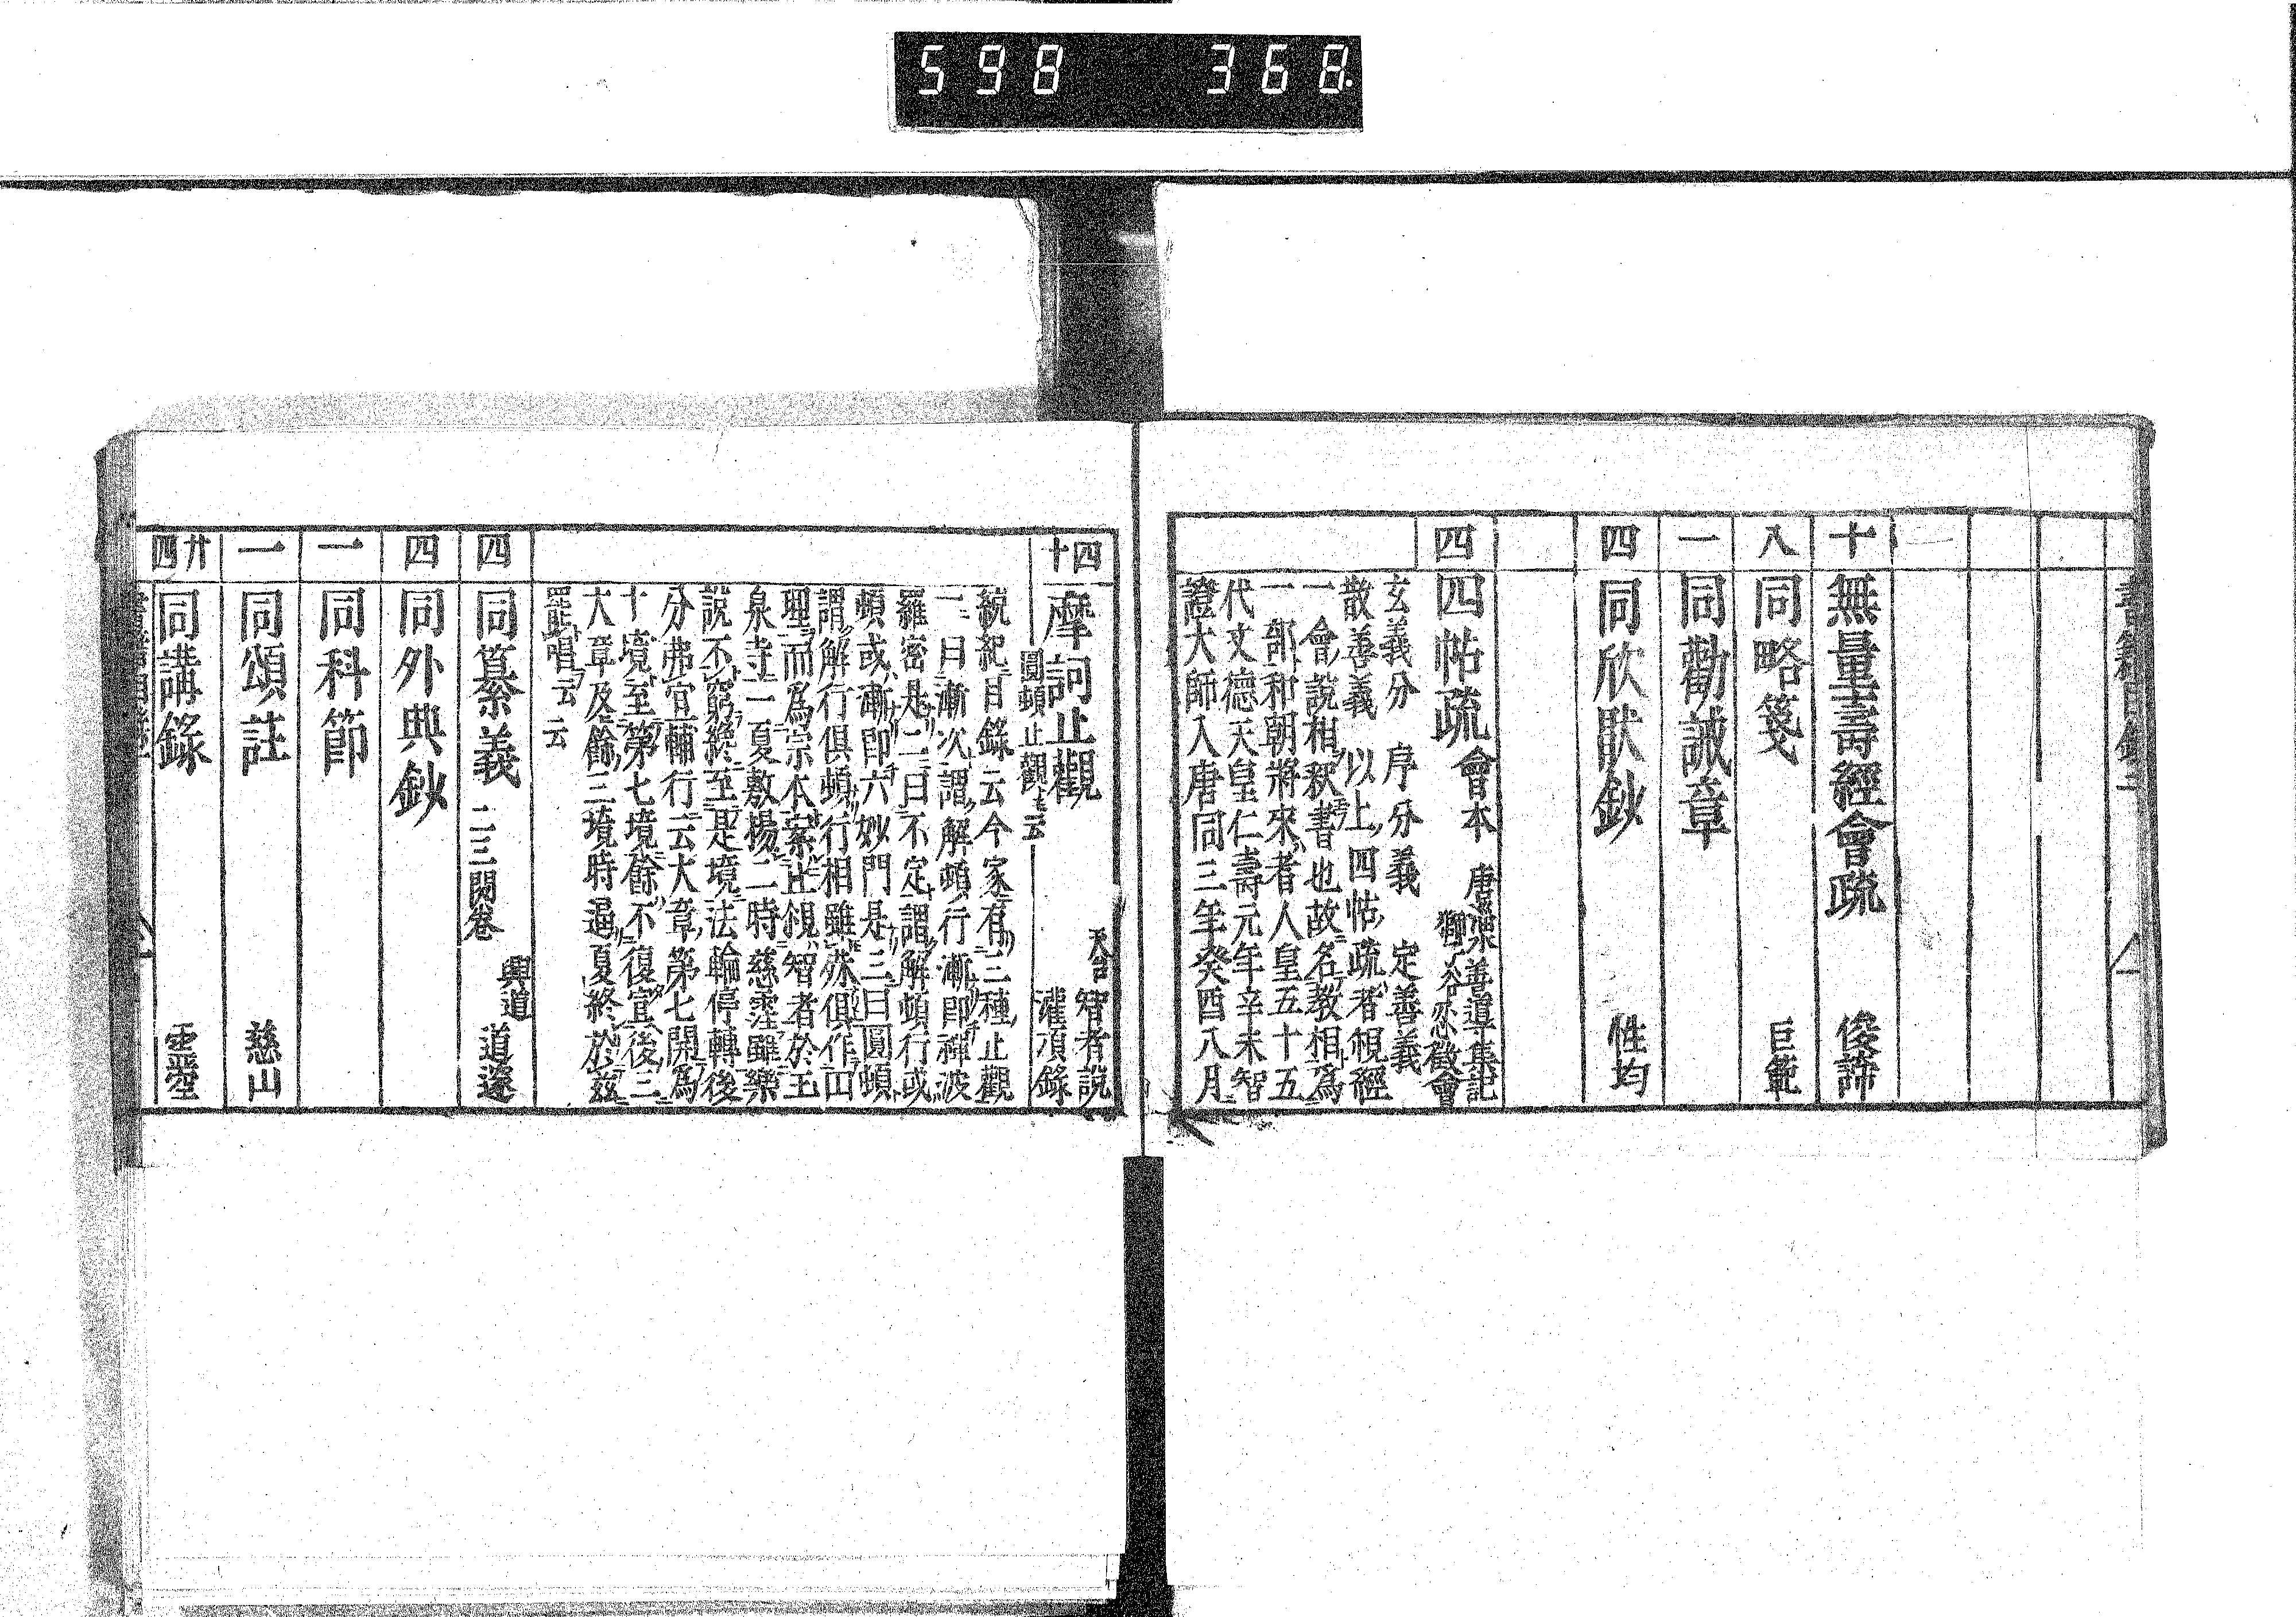 598 368
書籍目錄三
十 無量壽經會疏 俊諦
八 同略箋 巨範
一 同勸誡章
四 同欣猒鈔 性均
四 四帖疏會本 唐 善導集記
獅谷忍徵會
玄義分 序分義 定善義
散善義 以上四帖疏者觀經
一會說相釈書也故名教相爲
一部和朝將來者人皇五十五
代文德天皇仁壽元年辛未智
證大師入唐同三年癸酉八月
四十 摩訶止觀 天台 智者說
灌頂錄
圓頓止觀士云
統紀目錄云今家有三種止觀
一曰漸次謂解頓行漸即禪波
羅密是二曰不定謂解頓行或
頓或漸即六妙門是三曰圓頓
謂解行俱頓行相雖殊俱作四
理而爲宗本案止觀智者於玉
泉寺一夏敷揚二時慈霔雖樂
說不窮纔至是境法輪停轉後
分弗宣輔行云大章第七開爲
十境至第七境餘不復宣後三
大章及餘三境時逼夏終於茲
罷唱云云
四 同纂義 二三闕卷 興道 道邃
四 同外典鈔
一 同科節
一 同頌註 慈山
廿四 同講錄 靈空